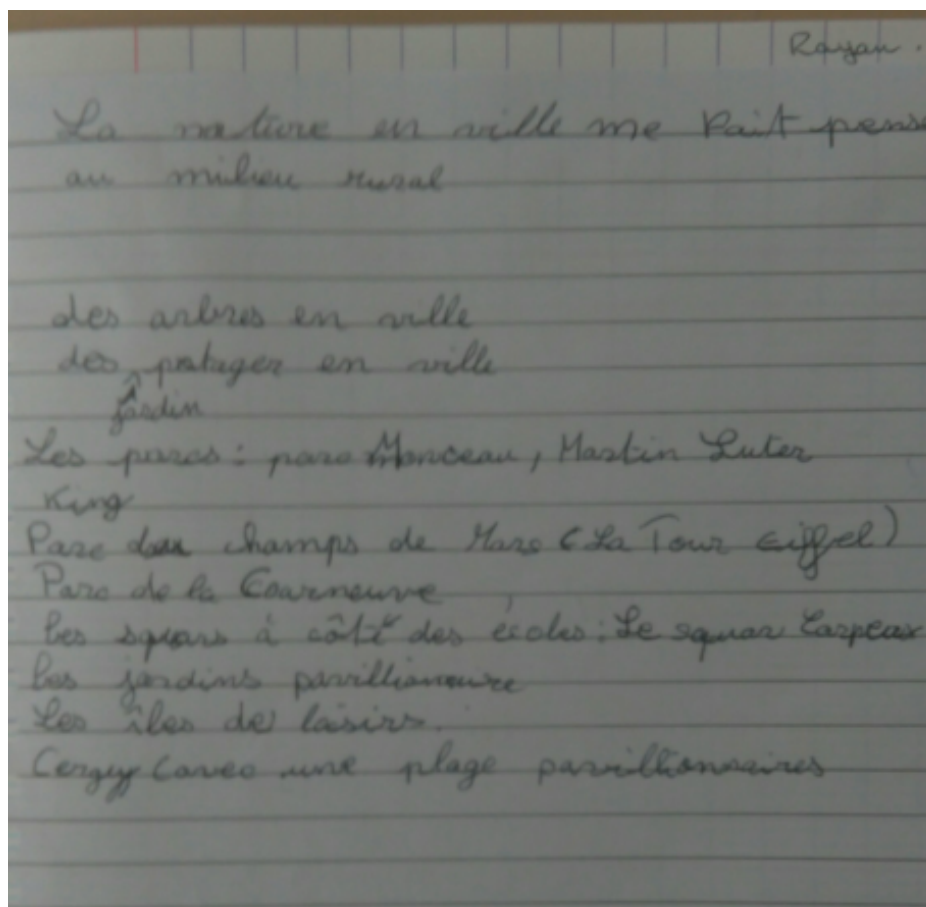 Rayan.
La nature en ville me fait pense
au milieu rural
des arbres en ville
des potager en ville
jardin
Les parcs : parc Monceau, Martin Luter
King
Parc du champs de Mars (La Tour Eiffel)
Parc de la Courneuve
Les squars à côté des écoles : Le squar Carpeau
Les jardins pavillionneure
Les îles de laisirs.
Cergy (avec une plage pavillionnaires